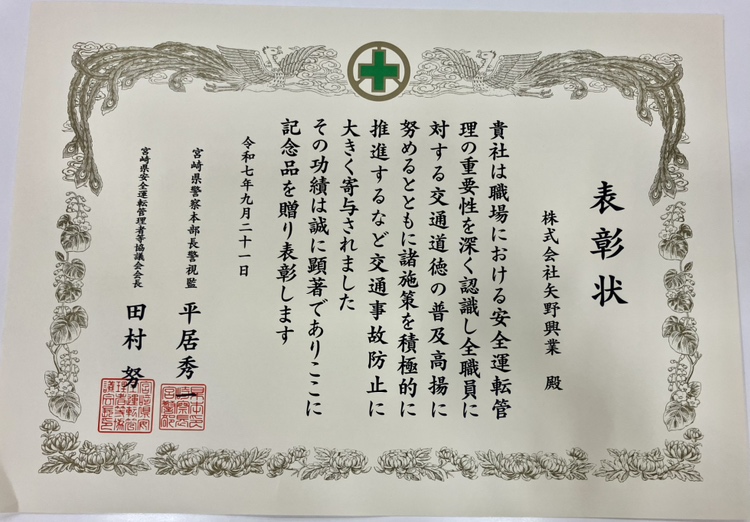 表彰状
株式会社矢野興業 殿
貴社は職場における安全運転管
理の重要性を深く認識し全職員に
対する交通道徳の普及高揚に
努めるとともに諸施策を積極的に
推進するなど交通事故防止に
大きく寄与されました
その功績は誠に顕著でありここに
記念品を贈り表彰します
令和七年九月二十一日
宮崎県警察本部長警視監 平居秀一
宮崎県安全運転管理者等協議会会長 田村努